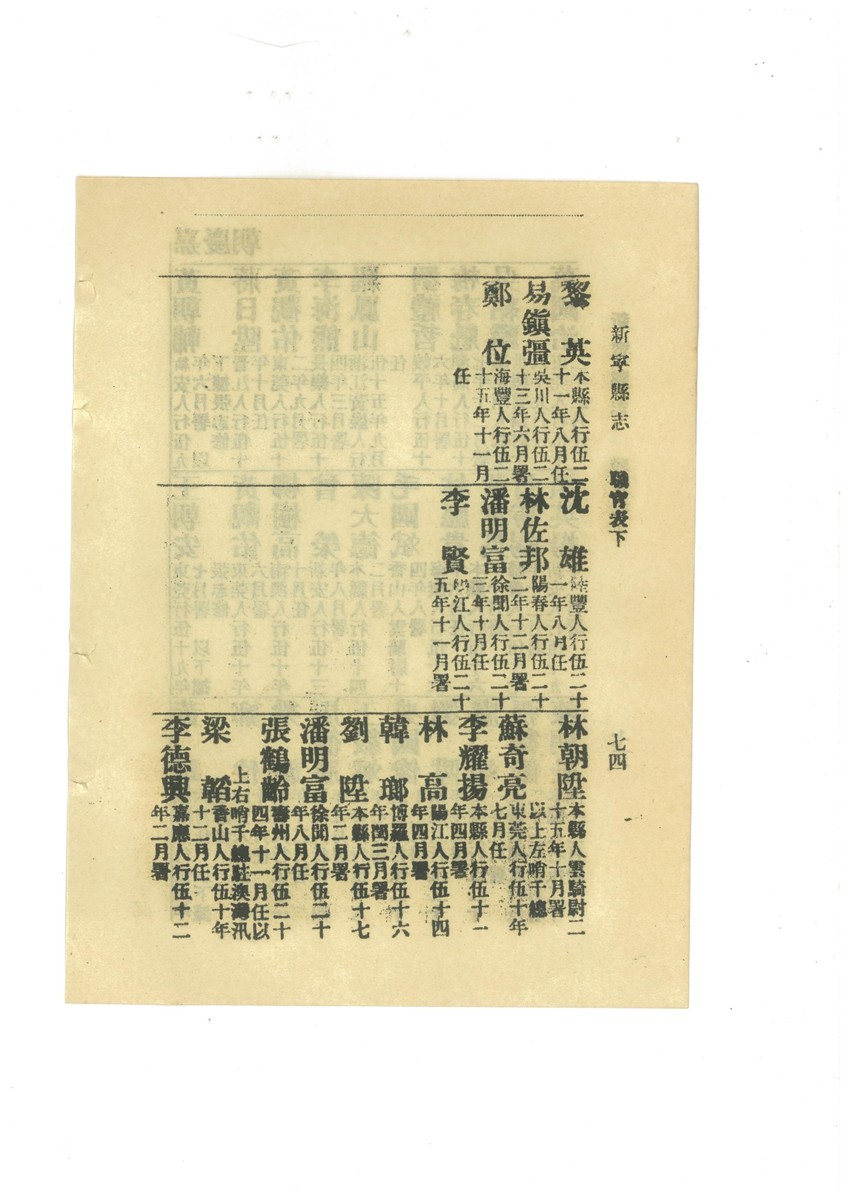 新寧縣志
職官表下
七四
黎英
本縣人行伍二
十一年八月任
易鎮彊
吳川人行伍二
十三年六月署
鄭位
海豐人行伍二
十五年十一月
任
沈雄
陸豐人行伍二十
一年八月任
林佐邦
陽春人行伍二十
二年十二月署
潘明富
徐聞人行伍二十
三年十月任
李賢
江人行伍二十
五年十一月署
林朝陞
本縣人雲騎尉二
十五年十月署
以上左哨千總
蘇奇亮
東莞人行伍十年
七月任
李耀揚
本縣人行伍十一
年四月署
林高
陽江人行伍十四
年四月署
韓瑯
博羅人行伍十六
年閏三月署
劉陞
本縣人行伍十七
年二月署
潘明富
徐聞人行伍二十
年八月任
張鶴齡
壽州人行伍二十
四年十一月任以
上右哨千總駐澳灣汛
梁韜
香山人行伍十年
十二月任
李德興
嘉應人行伍十二
年二月署